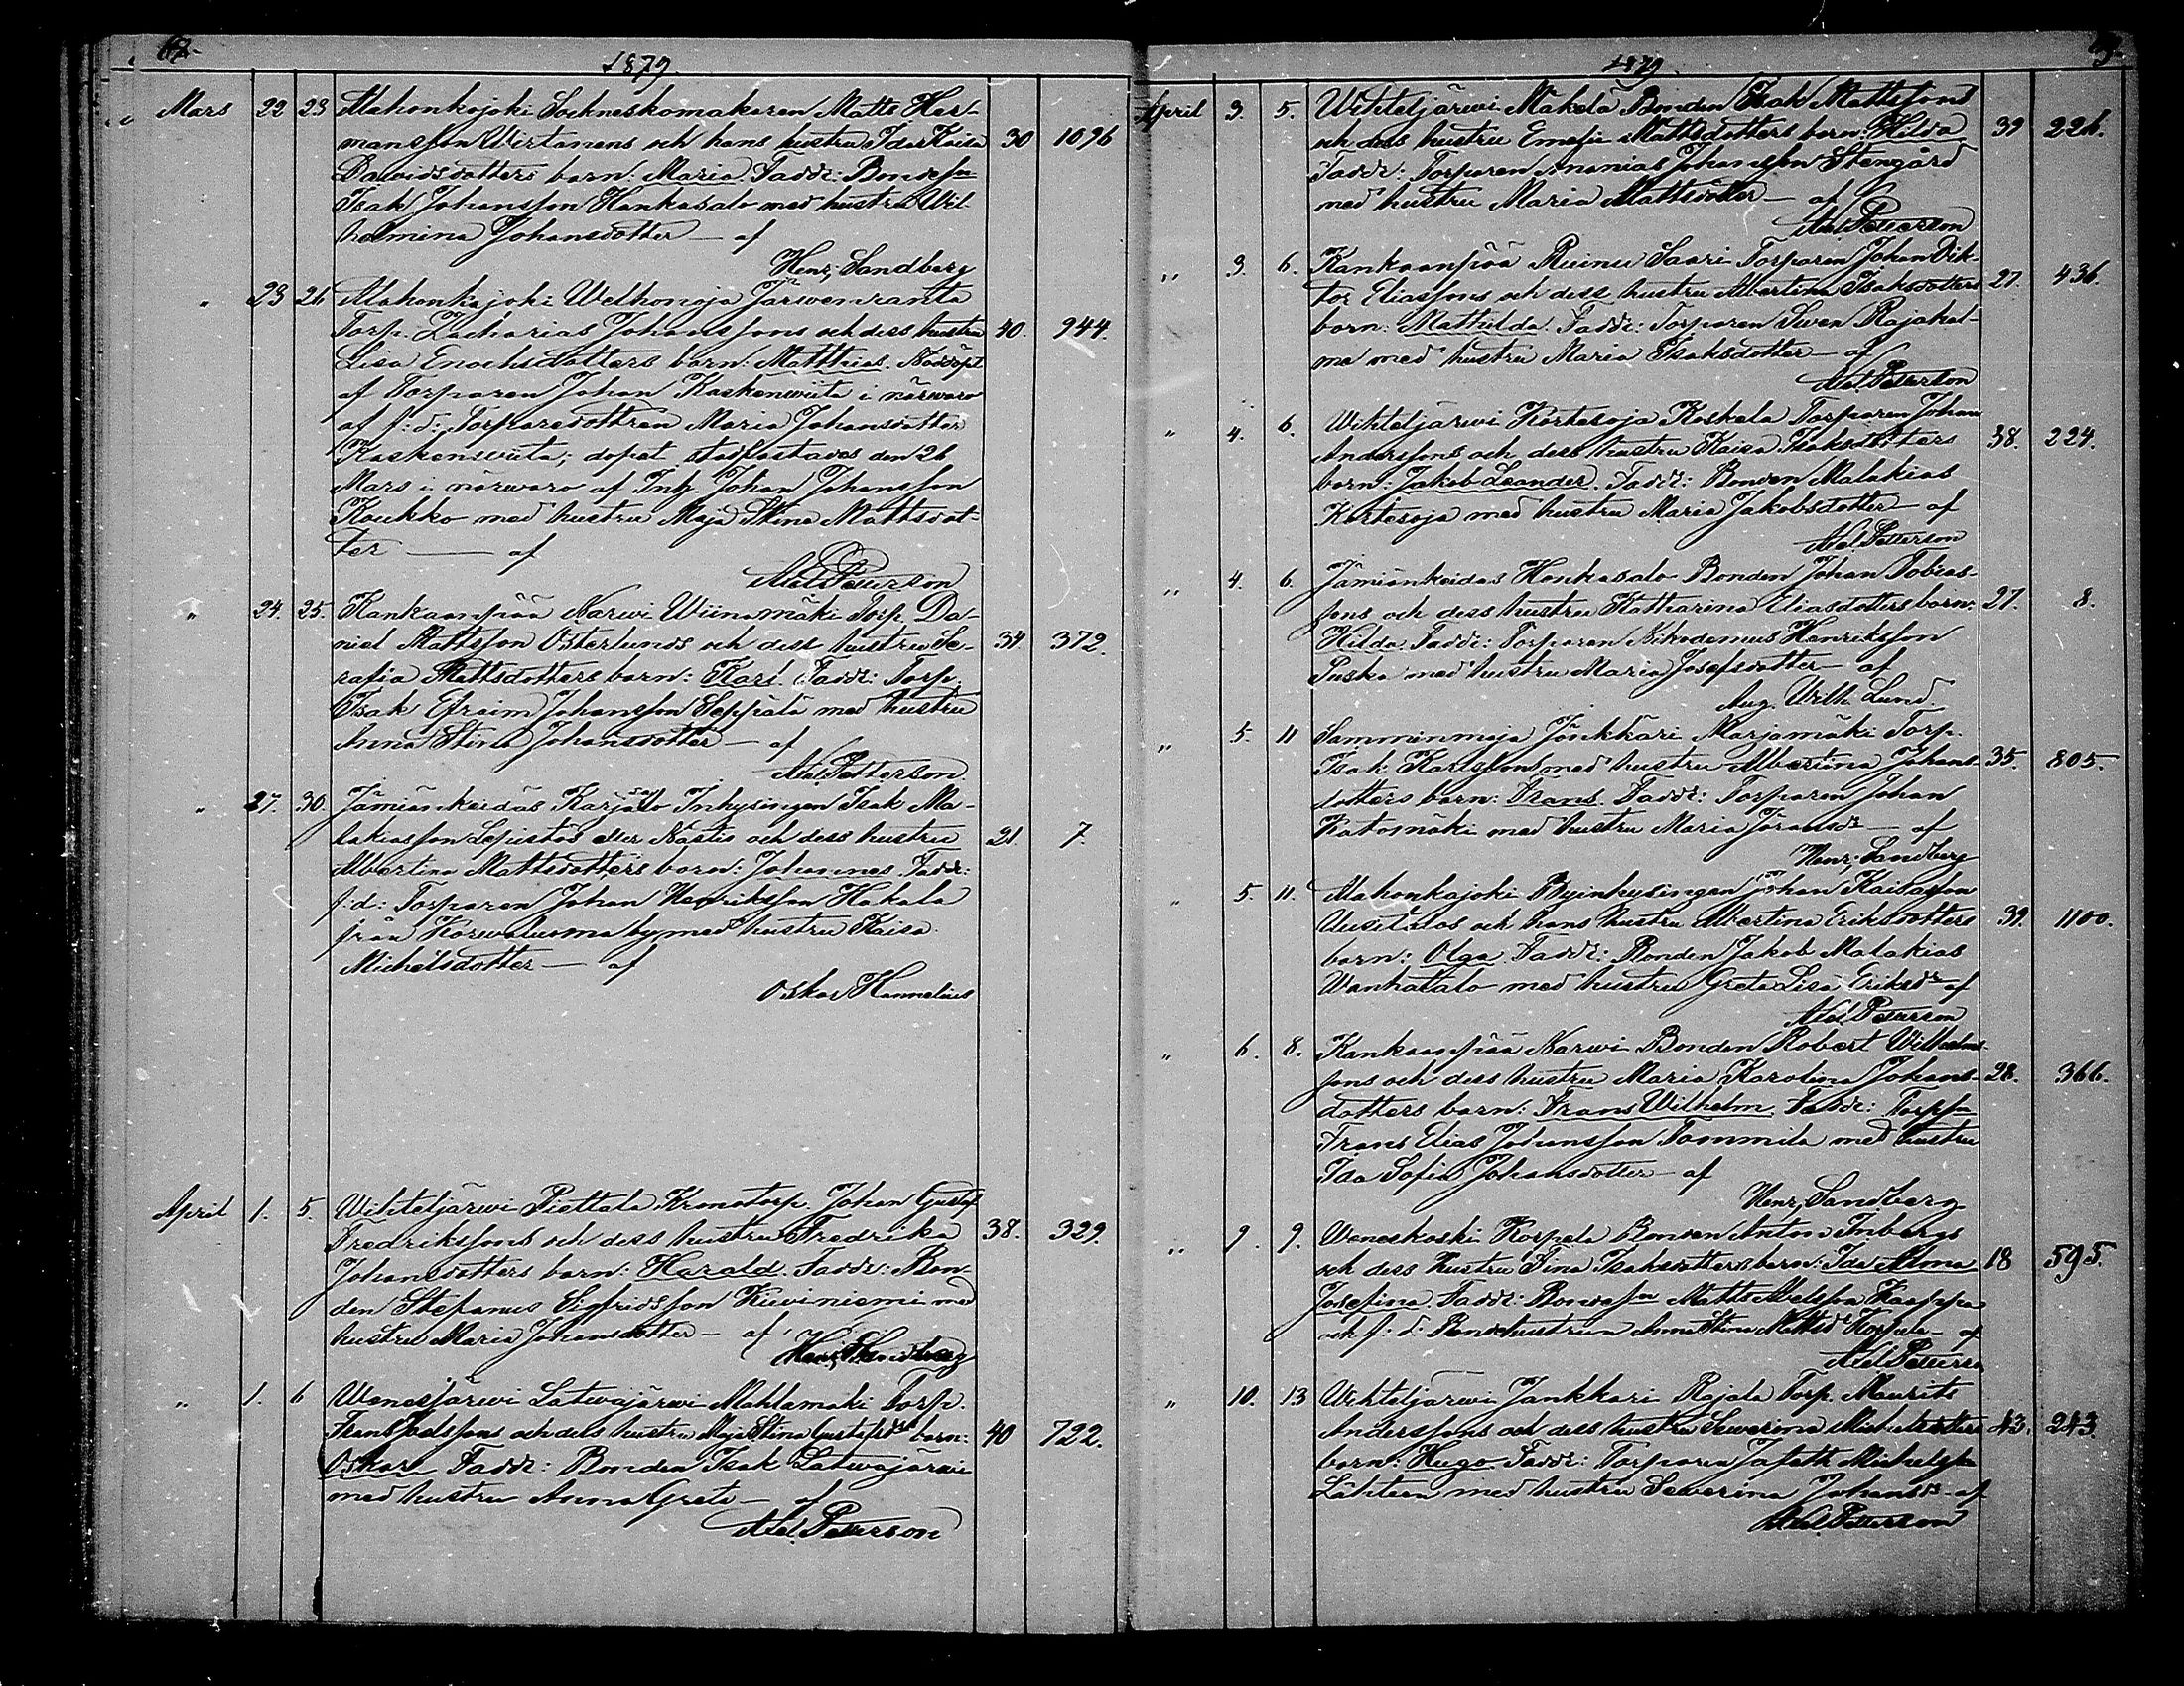 1879.
Mars 22 23 Alahonkajoki Sockneskomakaren Matts Her-
mansson Wirtanens och hans hustru Ida Kaisa 30 1096
Davidsdotters barn: Maria. Faddr: Bondesn
Isak Johansson Honkasalo med hustru Wil-
helmina Johansdotter — af
Henr. Sandberg
" 23 26 Alahonkajoki Welhonoja Järwenranta
Torp. Zacharias Johanssons och dess hustru 40. 944.
Lisa Enochsdotters barn: Matthias. Nöddöpt
af Torparen Johan Kaskenwiita i närwaro
af f:d: Torparedottren Maria Johansdotter
Kaskenwiita; dopet stadfästades den 26
Mars i närwaro af Inh. Johan Johansson
Koukko med hustru Maja Stina Mattsdot-
ter — af
Axel Petterson
" 24. 25. Kankaanpää Narwi Wiinamäki Torp. Da-
niel Mattsson Österlunds och dess hustru Se- 34. 372.
rafia Mattsdotters barn: Karl. Faddr: Torp.
Isak Efraim Johansson Seppälä med hustru
Anna Stina Johansdotter — af
Axel Petterson.
" 27. 30. Jämiänkeidas Karjasalo Inhysingen Isak Ma-
lakiasson Lepistös eller Nästis och dess hustru 21. 7.
Albertina Mattsdotters barn: Johannes. Faddr:
f:d: Torparen Johan Henriksson Hakala
från Korwaluoma by med hustru Kaisa
Michelsdotter — af
Oskar Hannelius
April 1. 5. Wihteljärwi Piettala Kronotorp. Johan Gustaf
Fredrikssons och dess hustru Fredrika 38. 329.
Johansdotters barn: Harald. Faddr: Bon-
den Stefanus Sigfridsson Kiwiniemi med
hustru Maria Johansdotter — af
Henr. Sandberg
" 1. 6 Wenesjärwi Latwajärwi Mahlamäki Torp.
Frans Joelssons och dess hustru Maja Stina Gustafsdrs barn: 40 722.
Oskar. Faddr: Bonden Isak Latwajärwi
med hustru Anna Greta — af
Axel Petterson
1879.
April 3. 5. Wihteljärwi Mäkelä Bonden Isak Mattssons
och dess hustru Emelie Mattsdotters barn: Hilda 39 226.
Faddr: Torparen Ananias Johansson Stengård
med hustru Maria Mattsdotter — af
Axel Petterson
" 3. 6. Kankaanpää Ruinu Saari Torparen Johan Vik-
tor Eliassons och dess hustru Albertina Isaksdotters 27. 436.
barn: Mathilda. Faddr: Torparen Swen Rajahal-
me med hustru Maria Isaksdotter — af
Axel Petterson
" 4. 6. Wihteljärwi Kortesoja Koskela Torparen Johan
Anderssons och dess hustru Kaisa Isaksdotters 38. 224.
barn: Jakob Leander. Faddr: Bonden Malakias
Kortesoja med hustru Maria Jakobsdotter — af
Axel Petterson
" 4. 6. Jämiänkeidas Honkasalo Bonden Johan Tobias-
sons och dess hustru Katharina Eliasdotters barn: 27. 8.
Hilda. Faddr: Torparen Nikodemus Henriksson
Puska med hustru Maria Josefsdotter — af
Aug. Wilh. Lund.
" 5. 11 Samminmaja Jönkkäri Marjamäki Torp.
Isak Karlssons med hustru Albertina Johans- 35. 805.
dotters barn: Frans. Faddr: Torparen Johan
Katomäki med hustru Maria Joransdr — af
Henr. Sandberg
" 5. 11. Alahonkajoki Byinhysingen Johan Kaisasson
Uusitalos och hans hustru Albertina Eriksdotters 39. 1100.
barn: Olga. Faddr: Bonden Jakob Malakias
Wanhatalo med hustru Greta Lisa Eriksdr af
Axel Petterson
" 6. 8. Kankaanpää Narwi Bonden Robert Wilhelms-
sons och dess hustru Maria Karolina Johans- 28. 366.
dotters barn: Frans Wilhelm. Faddr: Torpsn
Frans Elias Johansson Tommila med hustru
Ida Sofia Johansdotter — af
Henr. Sandberg
" 9. 9. Weneskoski Korpela Bonden Anton Inbergs
och dess hustru Tina Isaksdotters barn: Ida Alma 18 595.
Josefina. Faddr: Bondesn Matts Abelsson Kaappa
och f:d: Bondehustrun Anna Stina Mattsdr Korpela — af
Axel Petterson
" 10. 13 Wihteljärwi Jankkari Rajala Torp. Maurits
Anderssons och dess hustru Sewerina Michelsdotters 43. 243.
barn: Hugo. Faddr: Torparen Jafeth Michelsson
Lähteen med hustru Sewerina Johansdr — af
Axel Petterson